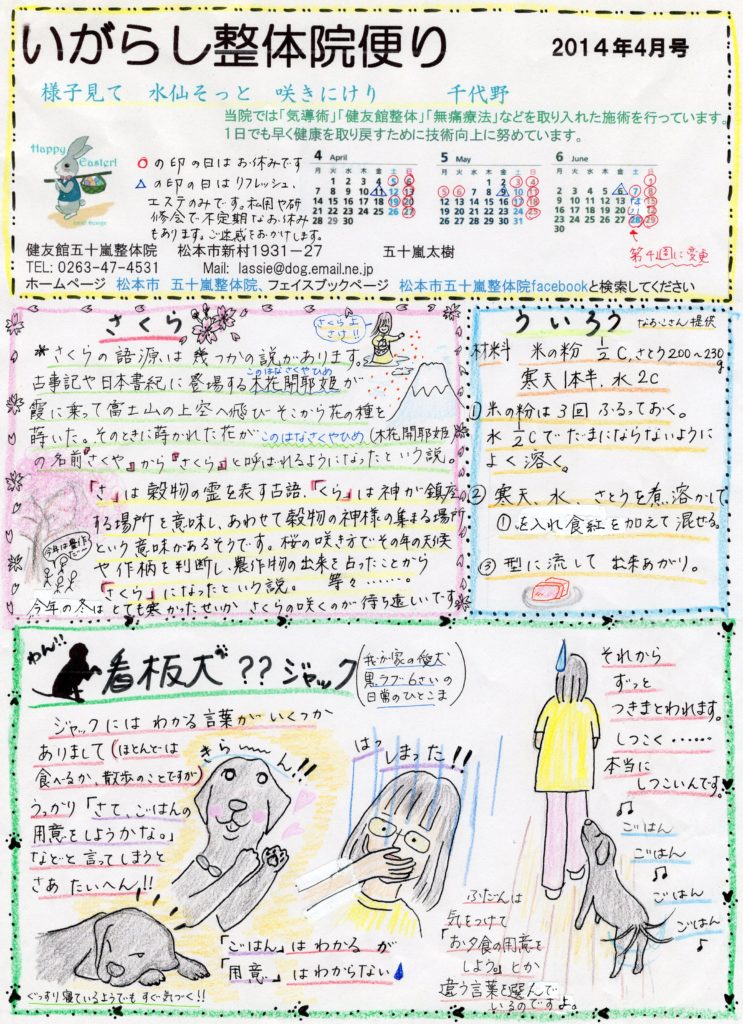 いがらし整体院便り
2014年4月号
様子見て 水仙そっと 咲きにけり 千代野
当院では「気導術」「健友館整体」「無痛療法」などを取り入れた施術を行っています。
1日でも早く健康を取り戻すために技術向上に努めています。
Happy
Easter!
○の印の日はお休みです
△の印の日はリフレッシュ、
エステのみです。私用や研
修会で不定期なお休みも
あります。ご迷惑をおかけします。
4 April
月 火 水 木 金 土 日
1 2 3 4 5 6
7 8 9 10 11 12 13
14 15 16 17 18 19 20
21 22 23 24 25 26 27
28 29 30
5 May
月 火 水 木 金 土 日
1 2 3 4
5 6 7 8 9 10 11
12 13 14 15 16 17 18
19 20 21 22 23 24 25
26 27 28 29 30 31
6 June
月 火 水 木 金 土 日
1
2 3 4 5 6 7 8
9 10 11 12 13 14 15
16 17 18 19 20 21 22
23 24 25 26 27 28 29
30
第4週に変更
健友館五十嵐整体院 松本市新村1931-27 五十嵐太樹
TEL: 0263-47-4531 Mail: lassie@dog.email.ne.jp
ホームページ 松本市 五十嵐整体院、フェイスブックページ 松本市五十嵐整体院facebookと検索してください
さくら
さくらよ
さけ!!
*さくらの語源は幾つかの説があります。
このはなさくやひめ
古事記や日本書紀に登場する木花開耶姫が
霞に乗って富士山の上空へ飛び そこから花の種を
蒔いた。そのときに蒔かれた花が このはなさくやひめ(木花開耶姫)
の名前『さくや』から『さくら』と呼ばれるようになったという説。
「さ」は穀物の霊を表す古語、「くら」は神が鎮座
する場所を意味し、あわせて穀物の神様の集まる場所
という意味があるそうです。桜の咲き方でその年の天候
や作柄を判断し、農作物の出来を占ったことから
『さくら』になったという説。 等々……
今年は豊作だ
今年の冬はとても寒かったせいか さくらの咲くのが待ち遠しいです
ういろう なおこさん提供
材料 米の粉 1/2C、さとう200~230g
寒天1本半、水2C
① 米の粉は3回ふるっておく。
水1/2Cでだまにならないように
よく溶く。
② 寒天、水、さとうを煮溶かして
①を入れ食紅を加えて混ぜる。
③ 型に流して 出来あがり。
わん!!
看板犬??ジャック
(我が家の愛犬
黒ラブ6さいの
日常のひとこま)
ジャックには わかる言葉がいくつか
ありまして(ほとんどは
食べるか、散歩のことですが)
うっかり「さて、ごはんの
用意をしようかな。」
などと言ってしまうと
さあ たいへん!!
きら〜〜ん!!
はっ しまった!!
「ごはん」はわかるが
「用意」はわからない
ぐっすり寝ているようでも すぐ気づく!!
それから
ずっと
つきまとわれます。
しつこく……
本当に
しつこいんです。
ごはん
ごはん
ごはん
ごはん
ふだんは
気をつけて
「お夕食の用意を
しよう。」とか
違う言葉を選んで
いるのですよ。